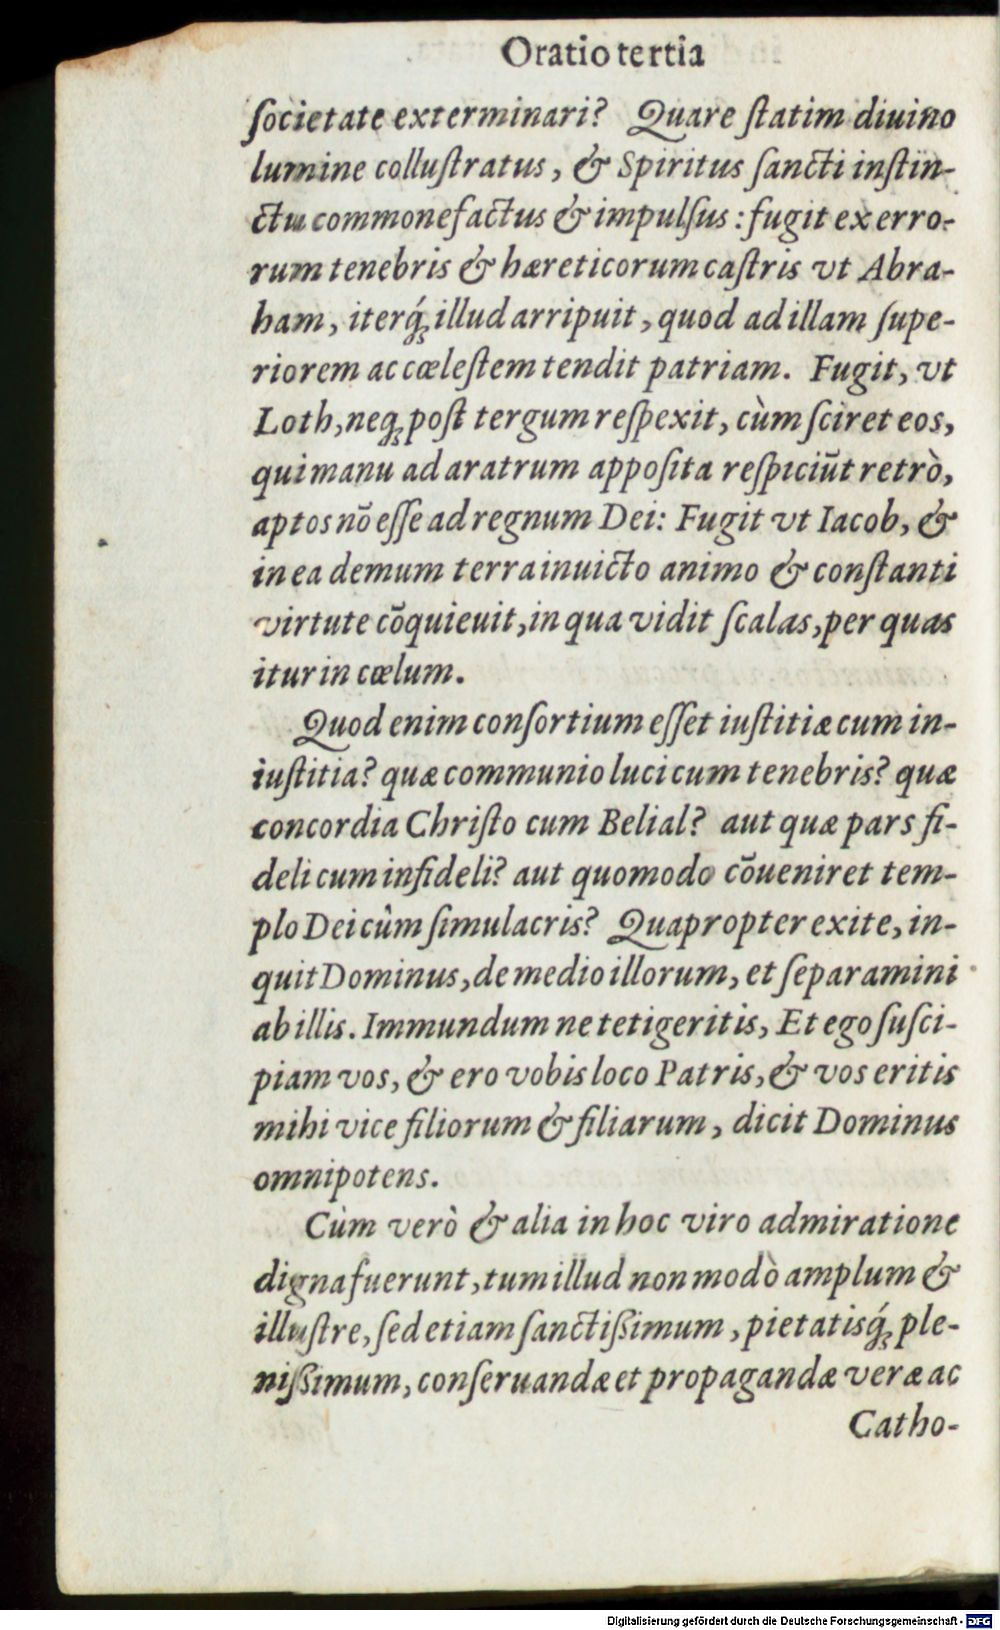 Oratio tertia
ſocietate exterminari? Quare ſtatim diuino
lumine colluſtratus, & Spiritus ſancti inſtin-
ctu commonefactus & impulſus: fugit ex erro-
rum tenebris & hæreticorum caſtris vt Abra-
ham, iterq́ꝫ illud arripuit, quod ad illam ſupe-
riorem ac cœleſtem tendit patriam. Fugit, vt
Loth, neqꝫ poſt tergum reſpexit, cùm ſciret eos,
qui manu ad aratrum appoſita reſpiciūt retrò,
aptos nō eſſe ad regnum Dei: Fugit vt Iacob, &
in ea demum terra inuicto animo & conſtanti
virtute cōquieuit, in qua vidit ſcalas, per quas
itur in cœlum.
Quod enim conſortium eſſet iuſtitiæ cum in-
iuſtitia? quæ communio luci cum tenebris? quæ
concordia Chriſto cum Belial? aut quæ pars fi-
deli cum infideli? aut quomodo cōueniret tem-
plo Dei cùm ſimulacris? Quapropter exite, in-
quit Dominus, de medio illorum, et ſeparamini
ab illis. Immundum ne tetigeritis, Et ego ſuſci-
piam vos, & ero vobis loco Patris, & vos eritis
mihi vice filiorum & filiarum, dicit Dominus
omnipotens.
Cùm verò & alia in hoc viro admiratione
digna fuerunt, tum illud non modò amplum &
illuſtre, ſed etiam ſanctiſsimum, pietatisq́ꝫ ple-
niſsimum, conſeruandæ et propagandæ veræ ac
Catho-
Digitalisierung gefördert durch die Deutsche Forschungsgemeinschaft - DFG